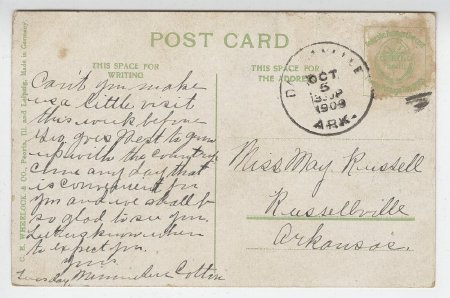 POST CARD
THIS SPACE FOR
WRITING
THIS SPACE FOR
THE ADDRESS
C. E. WHEELOCK & CO., Peoria, Ill. and Leipzig. Made in Germany
Can't you make
us a little visit
this week before
goes West to grow
up with the country
Come any day that
is convenient for
you and we shall b
so glad to see you.
Let us know when
to expect you.
yours
Tuesday Cotten
OCT
5
1909
ARK.
Miss May Russell
Russellville
Arkansas.